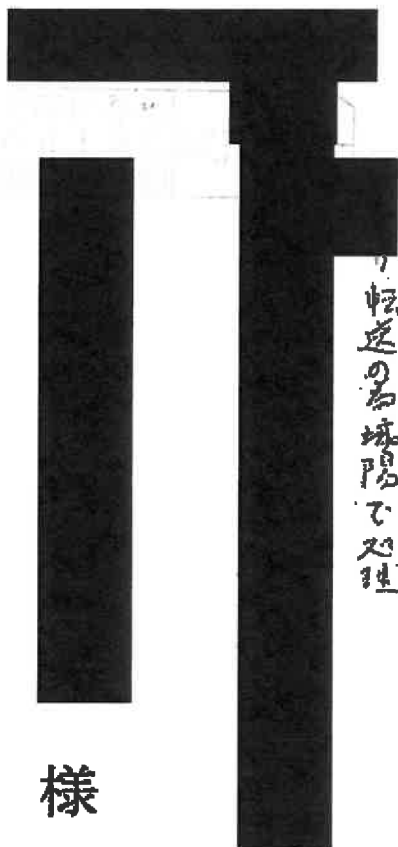 り転送の為城陽で処理
様